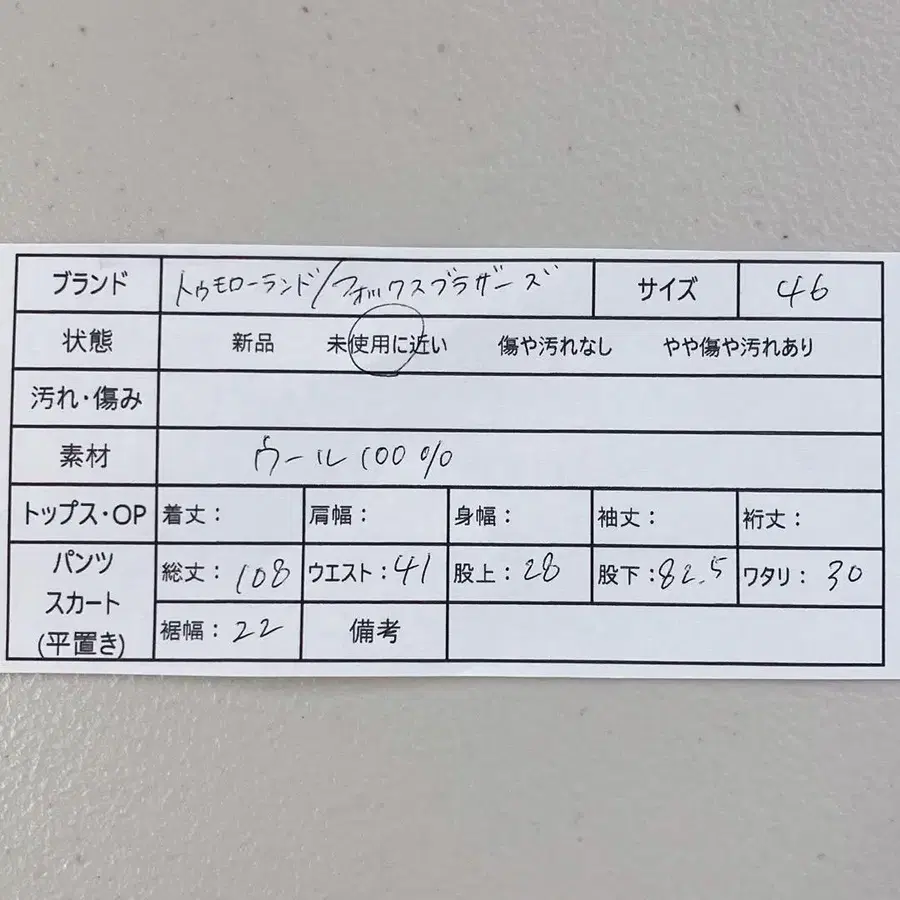 ブランド トゥモローランド/フォックスブラザーズ サイズ 46
状態 新品 未使用に近い 傷や汚れなし やや傷や汚れあり
汚れ・傷み
素材 ウール100%
トップス・OP 着丈: 肩幅: 身幅: 袖丈: 裄丈:
パンツ
スカート
(平置き)
総丈:108 ウエスト:41 股上:28 股下:82.5 ワタリ:30
裾幅:22 備考